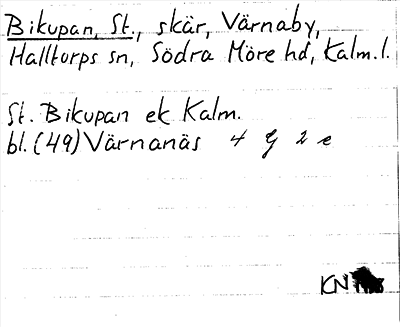 Bikupan, St., skär, Värnaby,
Halltorps sn, Södra Möre hd, Kalm. l.
St. Bikupan ek Kalm.
bl. (49) Värnanäs 4 G 2 e
KN